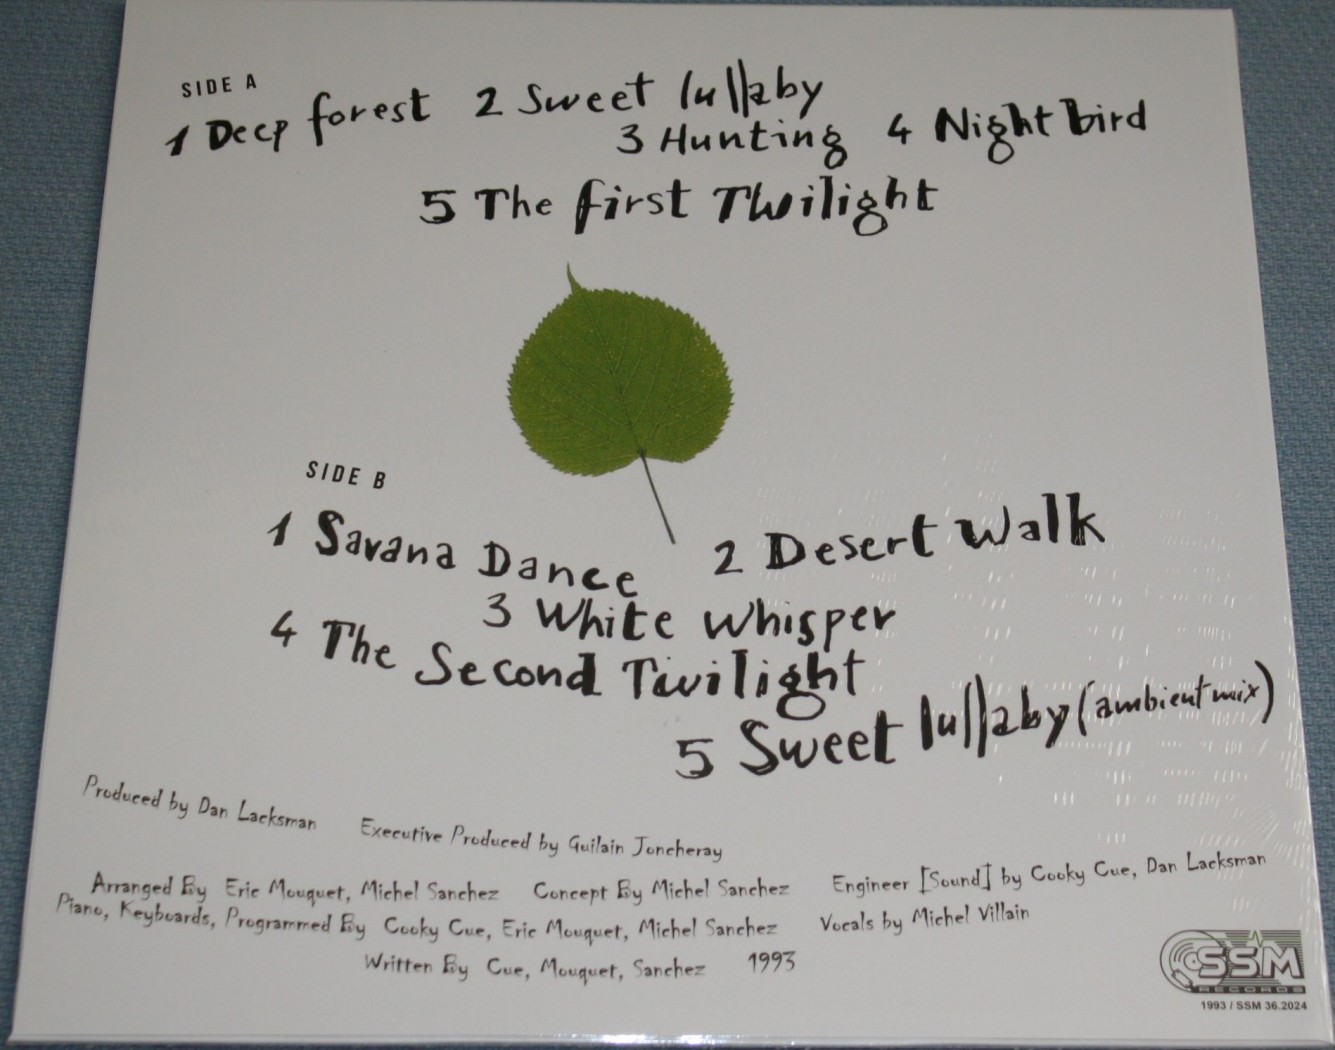 SIDE A
1 Deep forest 2 Sweet lullaby
3 Hunting 4 Night bird
5 The first Twilight
SIDE B
1 Savana Dance 2 Desert Walk
3 White Whisper
4 The Second Twilight
5 Sweet lullaby (ambient mix)
Produced by Dan Lacksman Executive Produced by Guilain Joncheray
Arranged By Eric Mouquet, Michel Sanchez Concept By Michel Sanchez Engineer [Sound] by Cooky Cue, Dan Lacksman
Piano, Keyboards, Programmed By Cooky Cue, Eric Mouquet, Michel Sanchez Vocals by Michel Villain
Written By Cue, Mouquet, Sanchez 1993
SSM
RECORDS
1993 / SSM 36.2024